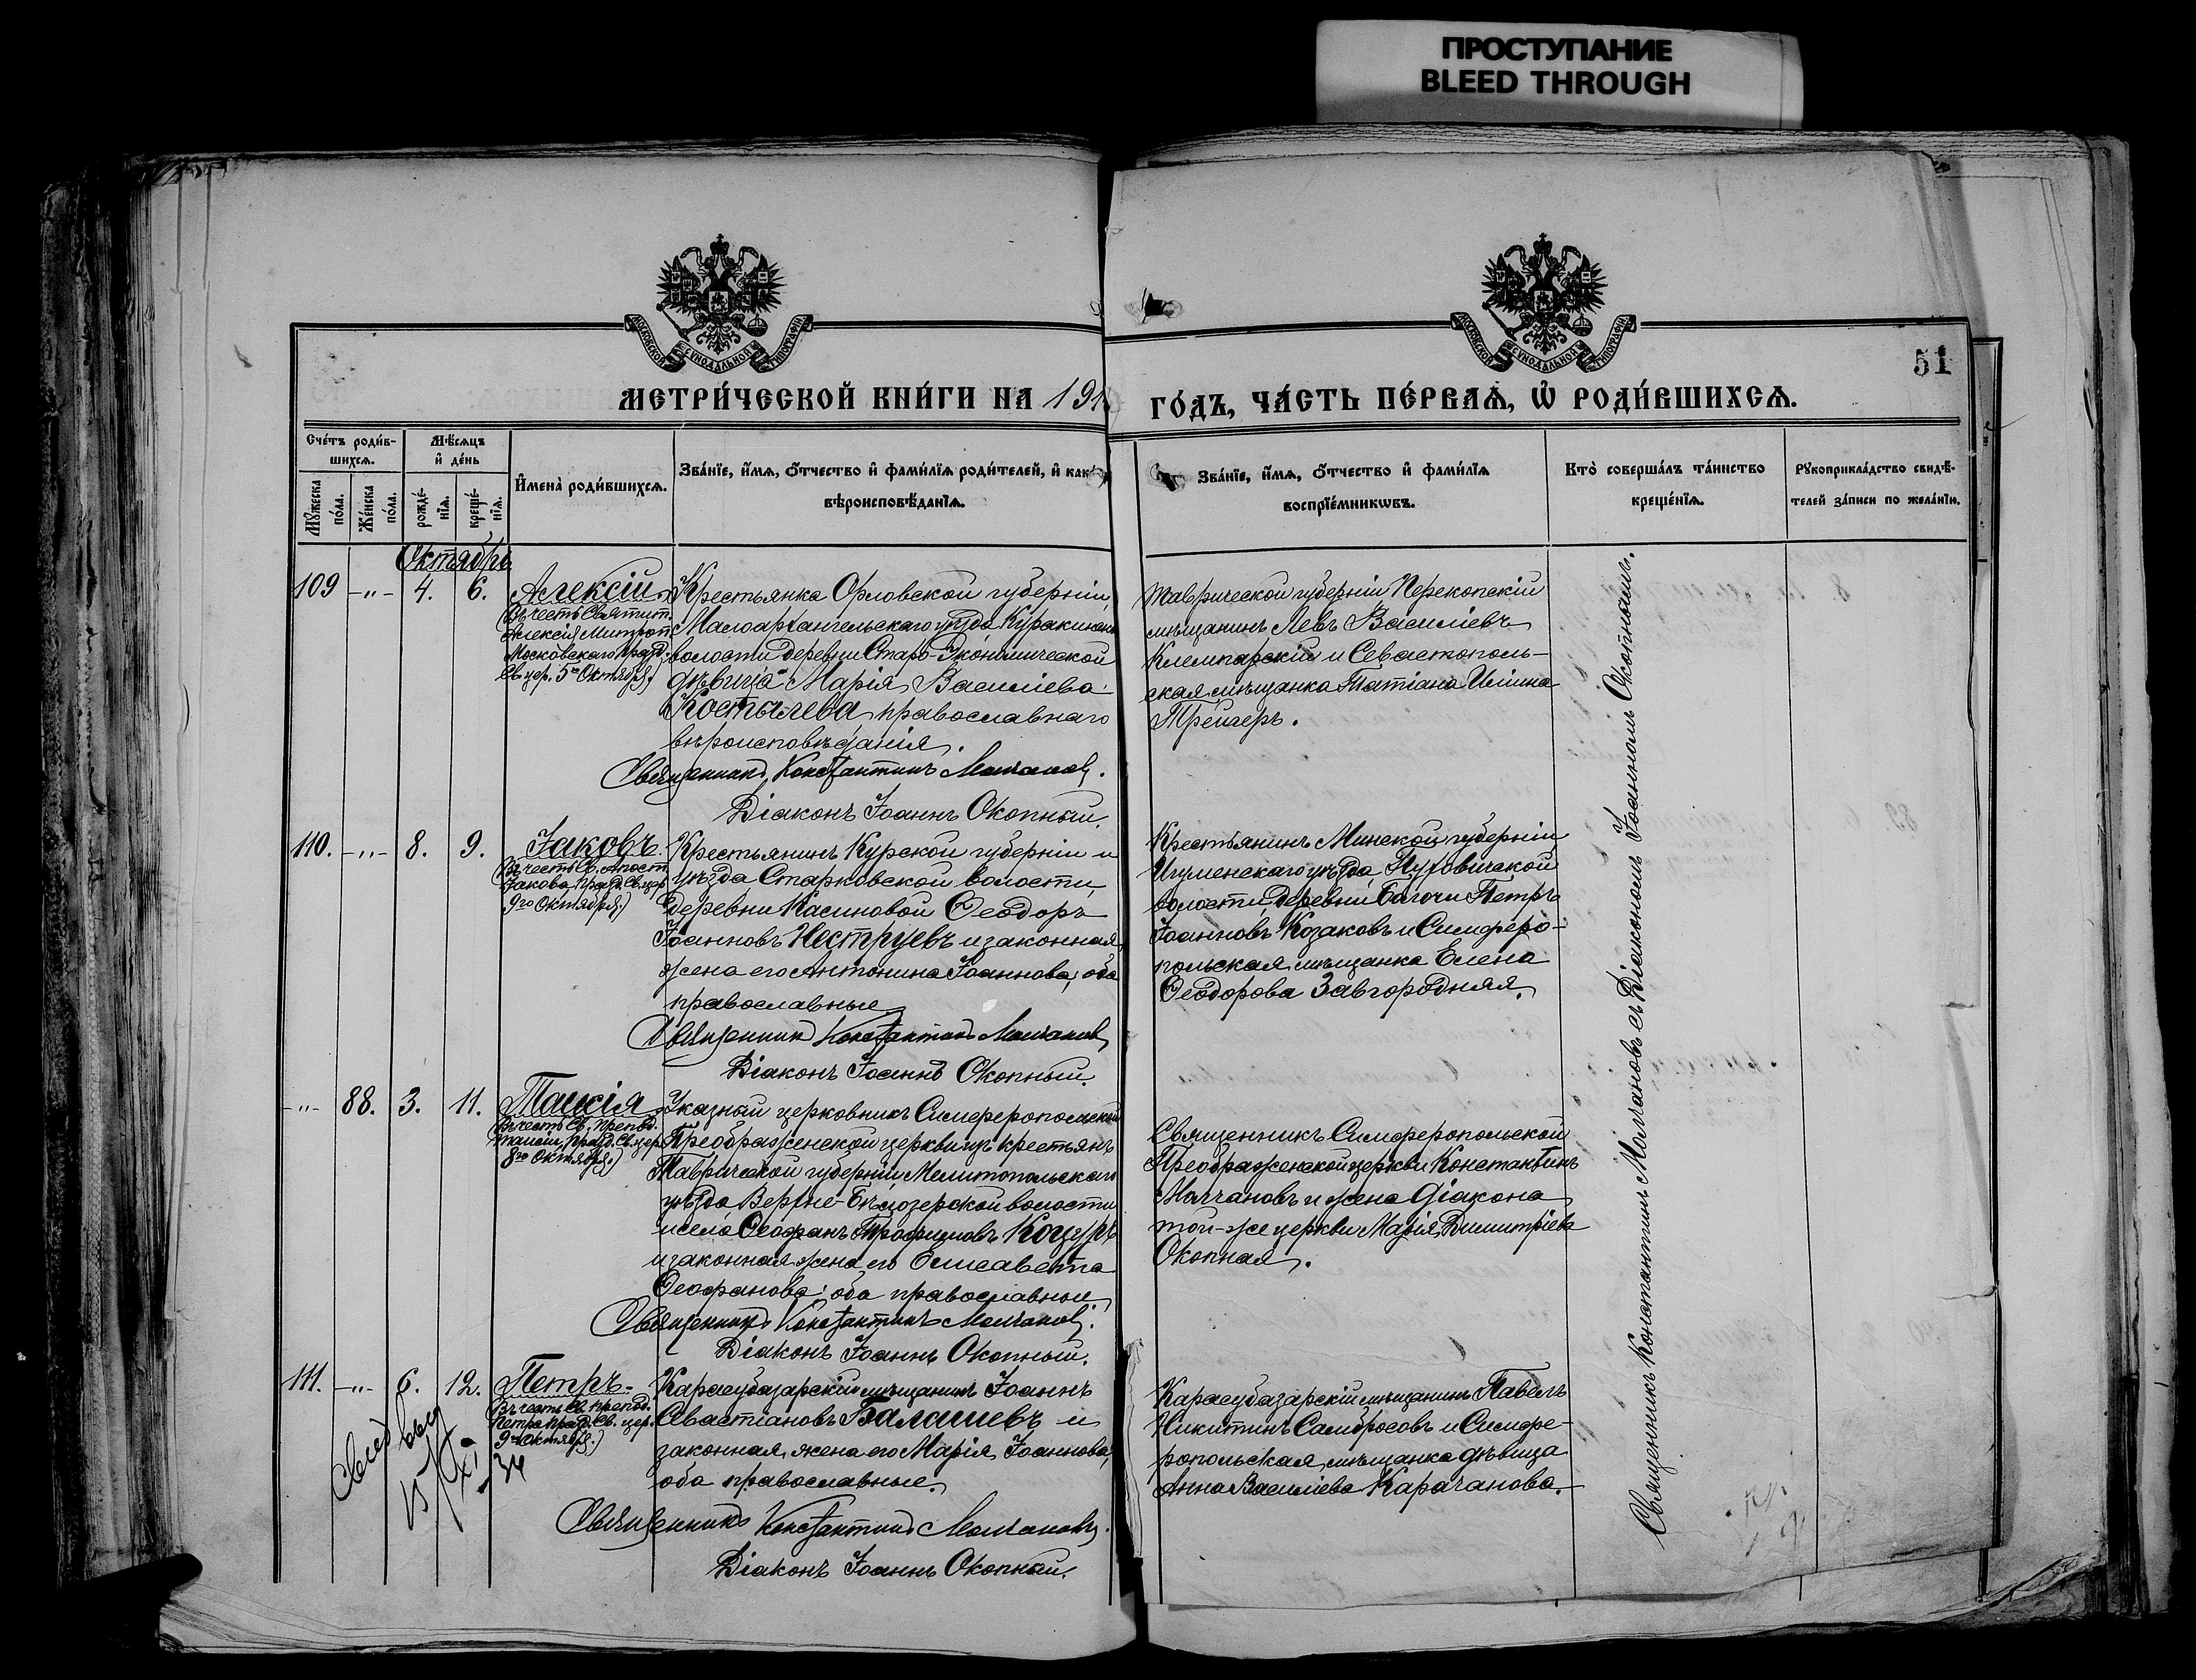 ПРОСТУПАНИЕ
BLEED THROUGH
МОСКОВСКОЙ СѴНОДАЛЬНОЙ ТИПОГРАФІИ
МОСКОВСКОЙ СѴНОДАЛЬНОЙ ТИПОГРАФІИ
51
МЕТРИ́ЧЕСКОЙ КНИ́ГИ НА 191
ГО́ДЪ, ЧА́СТЬ ПЕ́РВАѦ, Ѡ҆ РОДИ́ВШИХСѦ.
Сче́тъ роди́в-
шихсѧ.
Мѣ́сѧцъ
и҆ де́нь
Мꙋ́жеска
по́ла.
Же́нска
по́ла.
рожде́-
нїѧ.
креще́-
нїѧ.
И҆мена̀ роди́вшихсѧ.
Зва́нїе, и҆́мѧ, ѻ҆́тчество и҆ фами́лїѧ роди́телей, и҆ как
вѣроисповѣ́данїѧ.
Зва́нїе, и҆́мѧ, ѻ҆́тчество и҆ фами́лїѧ
воспрїе́мникѡвъ.
Кто̀ соверша́лъ та́инство
креще́нїѧ.
Рꙋкоприкла́дство свидѣ́-
телей за́писи по жела́нїю.
Октябрь
109 -"- 4. 6. Алексій
(Въ честь Святит.
Алексія Митроп.
Московскаго празд.
Св. цер. 5го Октября.)
Крестьянка Орловской губерніи,
Малоархангельскаго уѣзда Куракинской
волости деревни Старо-Экономической
дѣвица Марія Василіева
Костылева, православнаго
вѣроисповѣданія.
Священникъ Константинъ Молчановъ.
Діаконъ Іоаннъ Окопный.
Таврической губерніи Перекопскій
мѣщанинъ Левъ Василіевъ
Клемпарскій и Севастополь-
ская мѣщанка Татіана Иліина
Трейгеръ.
110. -"- 8. 9. Іаковъ.
(Въ честь Св. Апост.
Іакова, празд. Св. цер.
9го Октября.)
Крестьянинъ Курской губерніи и
уѣзда Старковской волости,
деревни Касиновой Ѳеодоръ
Іоанновъ Неструевъ и законная
жена его Антонина Іоаннова, оба
православные.
Священникъ Константинъ Молчановъ
Діаконъ Іоаннъ Окопный.
Крестьянинъ Минской губерніи
Игуменскаго уѣзда, Пуховичской
волости, деревни Блочи Петръ
Іоанновъ Козаковъ и Симферо-
польская мѣщанка Елена
Ѳеодорова Завгородняя.
-"- 88. 3. 11. Таисія
(Въ честь Св. Препод.
Таисіи, празд. Св. цер.
8го Октября.)
Указный церковникъ Симферопольской
Преображенской церкви изъ крестьянъ
Таврической губерніи Мелитопольскаго
уѣзда Верхне-Бѣлозерской волости
и села Ѳеофанъ Трофимовъ Коцуръ
и законная жена его Елисавета
Ѳеофанова: оба православные.
Священникъ Константинъ Молчановъ.
Діаконъ Іоаннъ Окопный.
Священникъ Симферопольской
Преображенской церкви Константинъ
Молчановъ и жена діакона
той-же церкви Марія Димитріева
Окопная.
111. -"- 6. 12. Петръ.
(Въ честь Св. препод.
Петра празд. Св. цер.
9го Октября.)
Карасубазарскій мѣщанинъ Іоаннъ
Севастіановъ Балашевъ и
законная жена его Марія Іоаннова,
оба православные.
Священникъ Константинъ Молчановъ.
Діаконъ Іоаннъ Окопный.
Карасубазарскій мѣщанинъ Павелъ
Никитинъ Самбросовъ и Симфе-
ропольская мѣщанка дѣвица
Анна Василіева Карачанова.
Священникъ Константинъ Молчановъ съ Діакономъ Іоанномъ Окопнымъ.